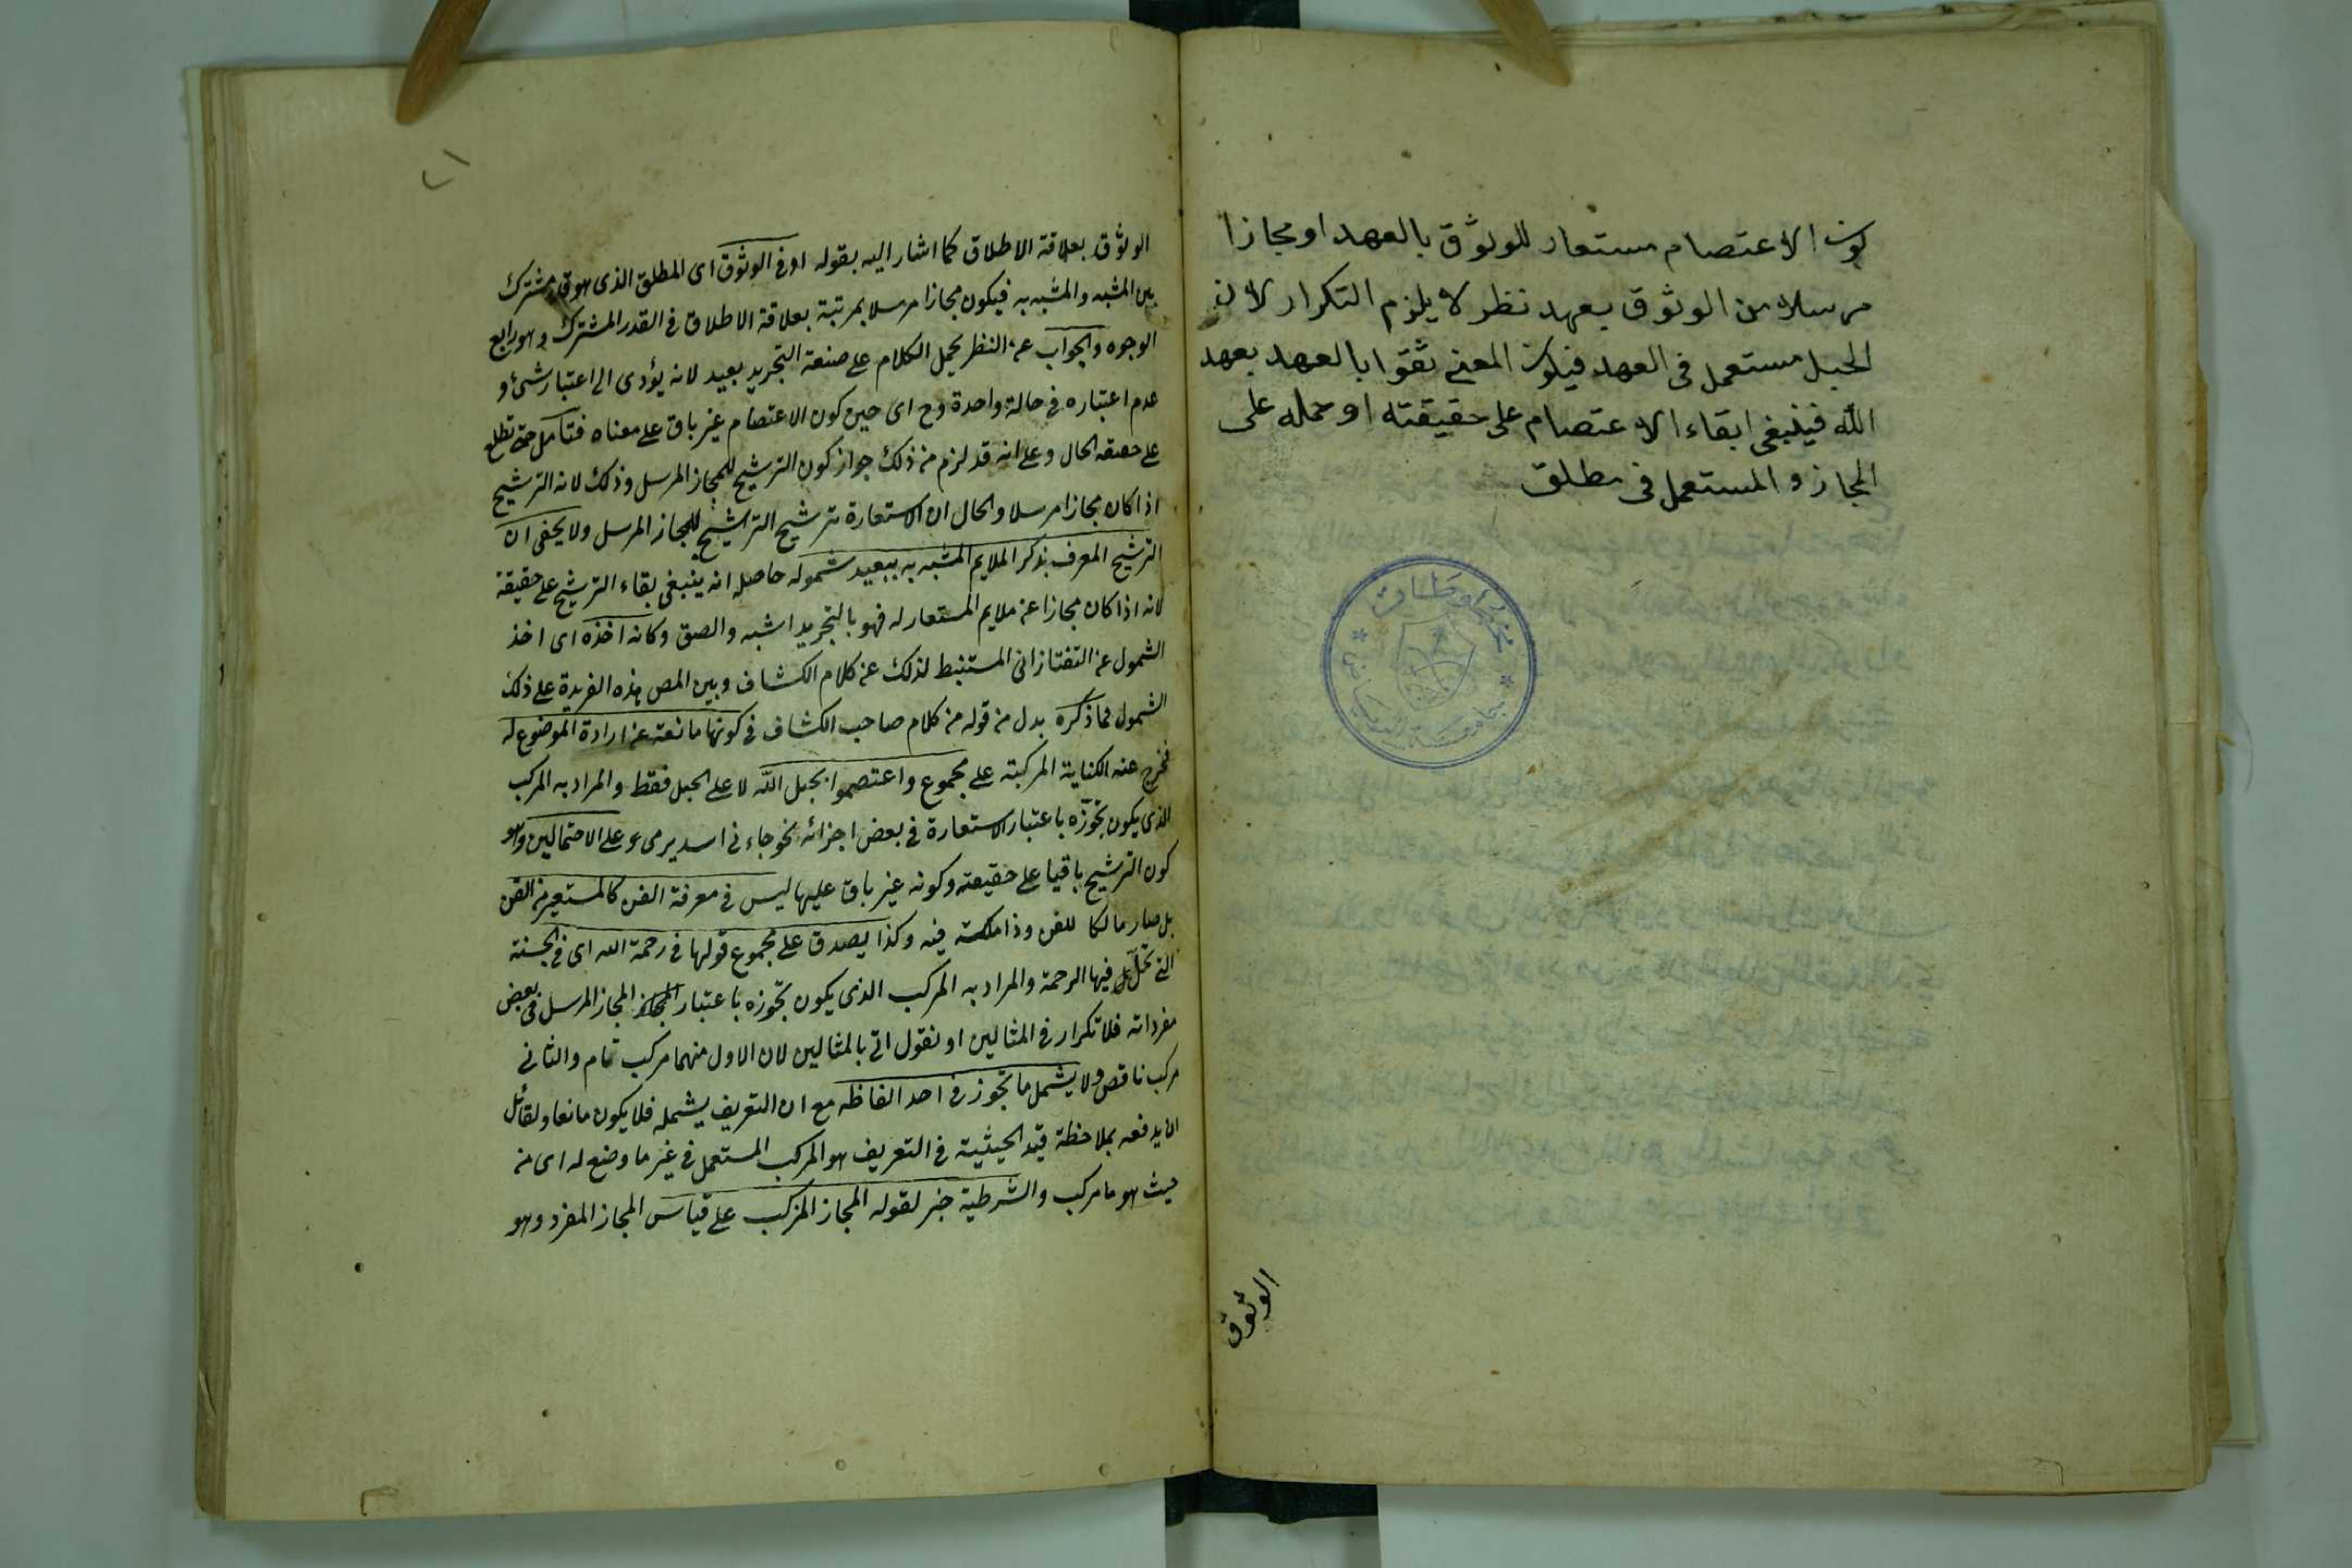 كون الاعتصام مستعار للوثوق بالعهد او مجازا
مرسلا من الوثوق بعهد نظر لا يلزم التكرار لان
الحبل مستعمل فى العهد فيكون المعنى ثقوا بالعهد بعهد
الله فينبغى ابقاء الاعتصام على حقيقته او حمله على
المجاز والمستعمل فى مطلق
الوثوق
الوثوق بعلاقة الاطلاق كما اشار اليه بقوله او فى الوثوق اى المطلق الذى هو قدر مشترك
بين المشبه والمشبه به فيكون مجازا مرسلا بمرتبة بعلاقة الاطلاق فى القدر المشترك وهو رابع
الوجوه والجواب عن النظر بحمل الكلام على صنعة التجريد بعيد لانه يؤدى الى اعتبار شئ و
عدم اعتباره فى حالة واحدة وح اى حين كون الاعتصام غير باق على معناه فتأمل حتى تطلع
على حقيقة الحال وعلى انه قد لزم من ذلك جواز كون الترشيح للمجاز المرسل وذلك لانه الترشيح
اذا كان مجازا مرسلا والحال ان الاستعارة ترشيح الترشيح للمجاز المرسل ولا يخفى ان
الترشيح المعرف بذكر الملايم المشبه به ببعيد شموله حاصله انه ينبغى بقاء الترشيح على حقيقة
لانه اذا كان مجازا عن ملايم المستعار له فهو بالتجريد اشبه والصق وكانه اخذه اى اخذ
الشمول عن التفتازانى المستنبط لذلك عن كلام الكشاف وبين المص هذه الفريدة على ذلك
الشمول فما ذكره بدل من قوله من كلام صاحب الكشاف فى كونها مانعة عن ارادة الموضوع له
فخرج عنه الكناية المركبة على مجموع واعتصموا بحبل الله لا على الحبل فقط والمراد به المركب
الذى يكون تجوزه باعتبار الاستعارة فى بعض اجزائه نحو جاءنى اسد يرمى وعلى الاحتمالين وهو
كون الترشيح باقيا على حقيقته وكونه غير باق عليها ليس فى معرفة الفن كالمستعير من الفن
بل صار مالكا للفن وذا ملكة فيه وكذا يصدق على مجموع قولها فى رحمة الله اى فى الجنة
التى تحل فيها الرحمة والمراد به المركب الذى يكون تجوزه باعتبار المجاز المرسل فى بعض
مفرداته فلا تكرار فى المثالين او نقول اتى بالمثالين لان الاول منهما مركب تام والثانى
مركب ناقص ولا يشمل ما تجوز فى احد الفاظه مع ان التعريف يشمله فلا يكون مانعا ولقائل
ان يدفعه بملاحظة قيد الحيثية فى التعريف هو المركب المستعمل فى غير ما وضع له اى من
حيث هو مركب والشرطية خبر لقوله المجاز المركب على قياس المجاز المفرد وهو